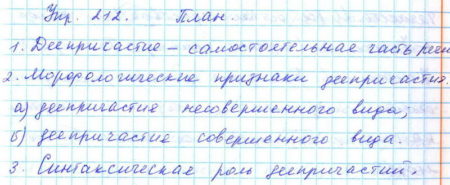 Упр. 212. План.
1. Деепричастие – самостоятельная часть речи
2. Морфологические признаки деепричастия.
а) деепричастие несовершенного вида;
б) деепричастие совершенного вида.
3. Синтаксическая роль деепричастий.